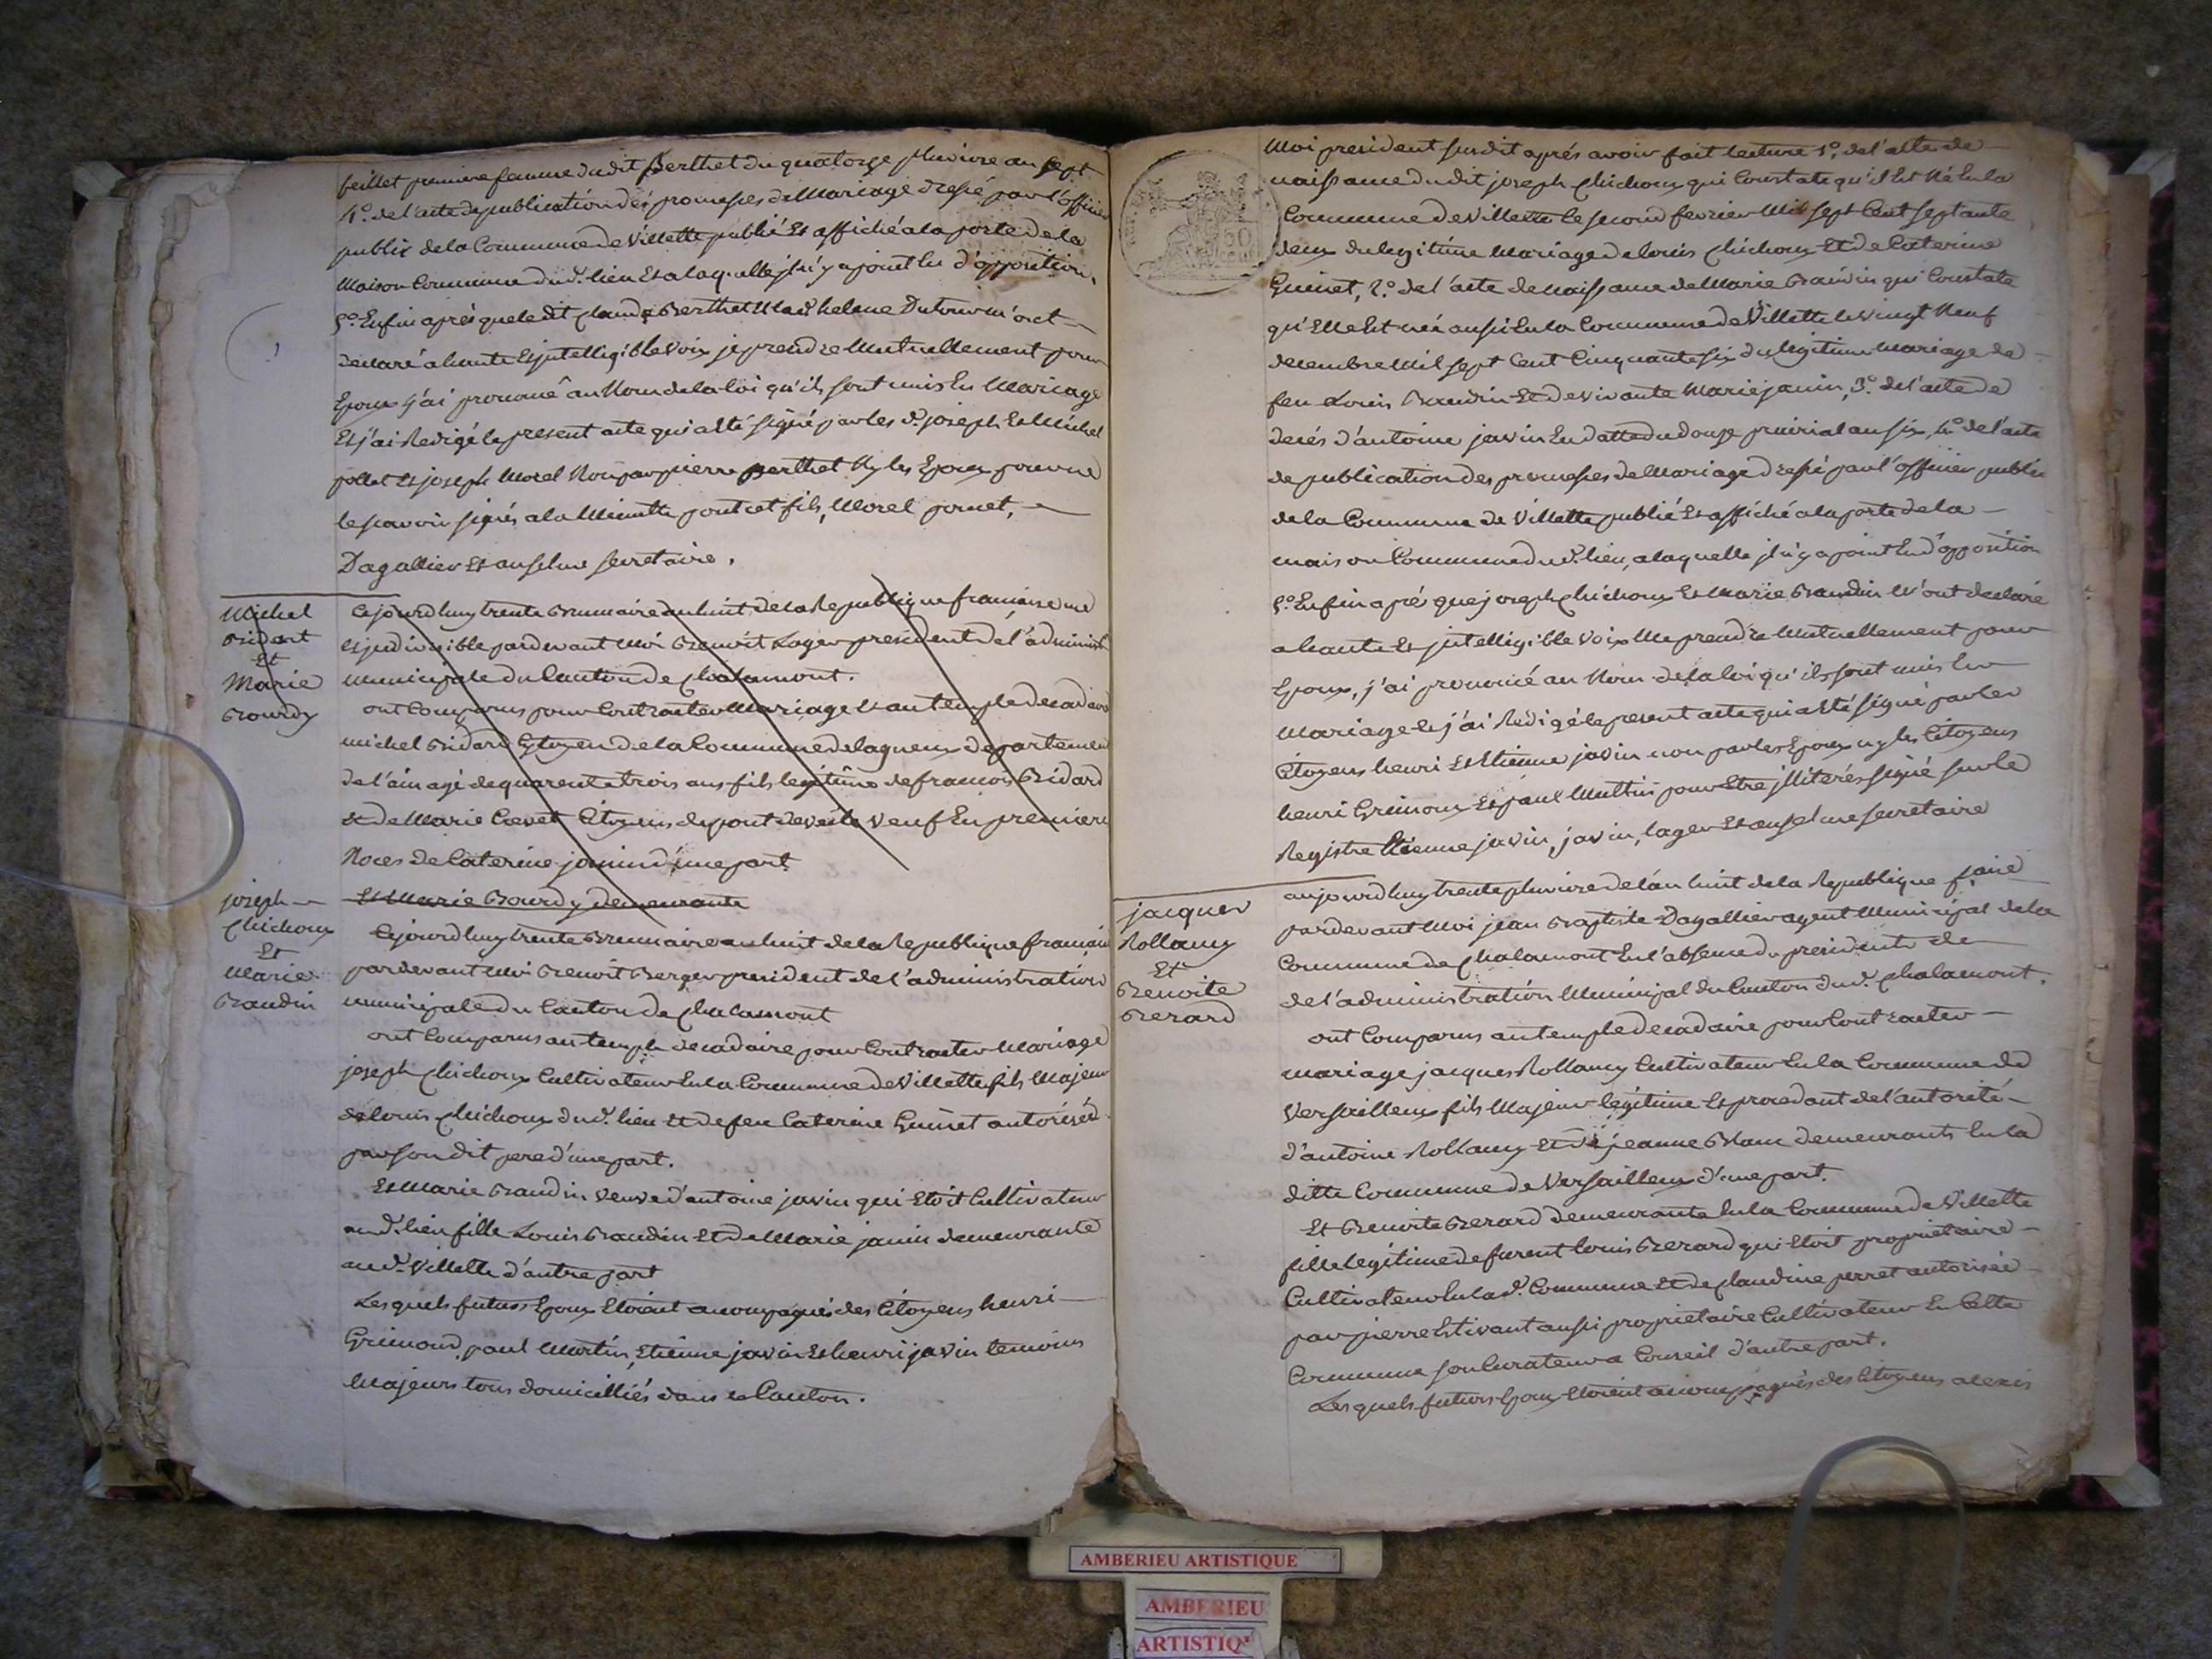 feuillet premiere femme dudit Berthet du quatorze pluviose an sept
4.° de l'acte de publication des promesses de Mariage dressé par l'officier
public de la Commune de Villette publié et affiché a la porte de la
Maison Commune dud. lieu et a laquelle il n'y a point eu d'opposition,
5.° Enfin aprés que ledit Claude Berthet et lad. helene Dutour m'ont
declaré a haute et intelligible voix se prendre Mutuellement pour
Epoux j'ai prononcé au Nom de la loi qu'ils sont unis En Mariage
Et j'ai Redigé le present acte qui a été signé par les d. joseph et Michel
pollet et joseph Morel Non par pierre Berthet Ny les Epoux pour ne
le scavoir signés a la Minutte fils, Morel
Dagallier et anselme secretaire.
Michel
Bidart
Et
Marie
Bourdy
Cejourd'huy trente Brumaire an huit de la Republique française une
et indivisible pardevant Moi Benoit Lager president de l'administ
municipale du Canton de Chalamont.
ont Comparus pour Contracter Mariage et au temple decadaire
michel Bidard Citoyen de la Commune de lagneux departement
de l'ain agé de quarente trois ans fils legitime de francois Bidard
et de Marie Citoyens de pont de veile veuf En premiere
Noces de Caterine janin d'une part
Et Marie Bourdy demeurante
joseph
Chichoux
Et
Marie
Baudin
Cejourd'huy trente Brumaire an huit de la Republique française
pardevant Moi Benoit Berger president de l'administration
municipale du Canton de Chalamont
ont Comparus au temple decadaire pour Contracter Mariage
joseph Chichoux Cultivateur En la Commune de Villette fils Majeur
de louis Chichoux dud. lieu et de feu Caterine Guinet autorisé
par son dit pere d'une part.
Et Marie Baudin veuve d'antoine javin qui Etoit Cultivateur
aud. lieu fille Louis Baudin et de Marie janin demeurante
aud. Villette d'autre part
Lesquels futurs Epoux Etoient accompagnés des Citoyens henri
Grimoud, paul Martin, Etienne javin et henri javin temoins
Majeurs tous domicilliés dans ce Canton.
50
cent
Moi president susdit aprés avoir fait lecture 1.° de l'acte de
naissance dudit joseph Chichoux qui Constate qu'il Est Né En la
Commune de Villette le second fevrier Mil sept Cent septante
deux du legitime Mariage de louis Chichoux et de Caterine
Guinet, 2.° de l'acte de naissance de Marie Baudin qui Constate
qu'Elle Est née aussi En la Commune de Villette le vingt Neuf
decembre Mil sept Cent Cinquante six du legitime Mariage de
feu Louis Baudin et de vivante Marie janin, 3.° de l'acte de
decés d'antoine javin En datte du douze prairial an six, 4.° de l'acte
de publication des promesses de Mariage dressé par l'officier public
de la Commune de Villette publié et affiché a la porte de la
maison Commune dud. lieu, a laquelle il n'y a point Eu d'opposition
5.° Enfin aprés que joseph Chichoux et Marie Baudin M'ont declaré
a haute et intelligible voix se prendre Mutuellement pour
Epoux, j'ai prononcé au Nom de la loi qu'ils sont unis En
Mariage et j'ai Redigé le present acte qui a été signé par les
Citoyens henri et Etienne javin non par les Epoux ny les Citoyens
henri Grimoux et paul Muttin pour Etre illiterés signé sur le
Registre Etienne javin, javin, lager et anselme secretaire
jacques
Rollamy
Et
Benoite
Berard
aujourd'huy trente pluviose de l'an huit de la Republique
pardevant Moi jean Baptiste Dagallier agent Municipal de la
Commune de Chalamont En l'absence du president de
de l'administration Municipal du Canton dud. Chalamont.
ont Comparus au temple decadaire pour Contracter
mariage jacques Rollamy Cultivateur En la Commune de
Versailleux fils Majeur legitime et procedant de l'autorité
d'antoine Rollamy et de jeanne Blanc demeurants En la
ditte Commune de Versailleux d'une part.
Et Benoite Berard demeurante En la Commune de Villette
fille legitime de furent louis Berard qui Etoit proprietaire
Cultivateur En lad. Commune et de Claudine perret autorisée
par pierre Estivant aussi proprietaire Cultivateur En Cette
Commune son Curateur a Conseil d'autre part.
Lesquels futurs Epoux Etoient accompagnés des Citoyens alexis
AMBERIEU ARTISTIQUE
AMBERIEU
ARTISTIQ